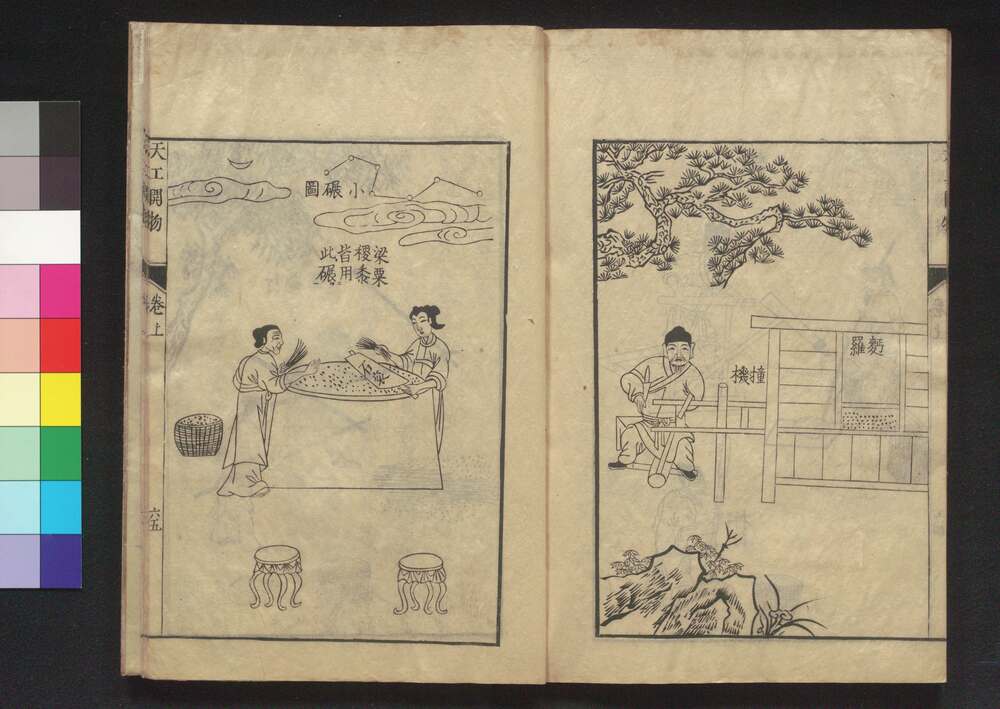 麪羅
撞機
小碾圖
梁粟
稷黍
皆用
此碾
天工開物
卷上
六五